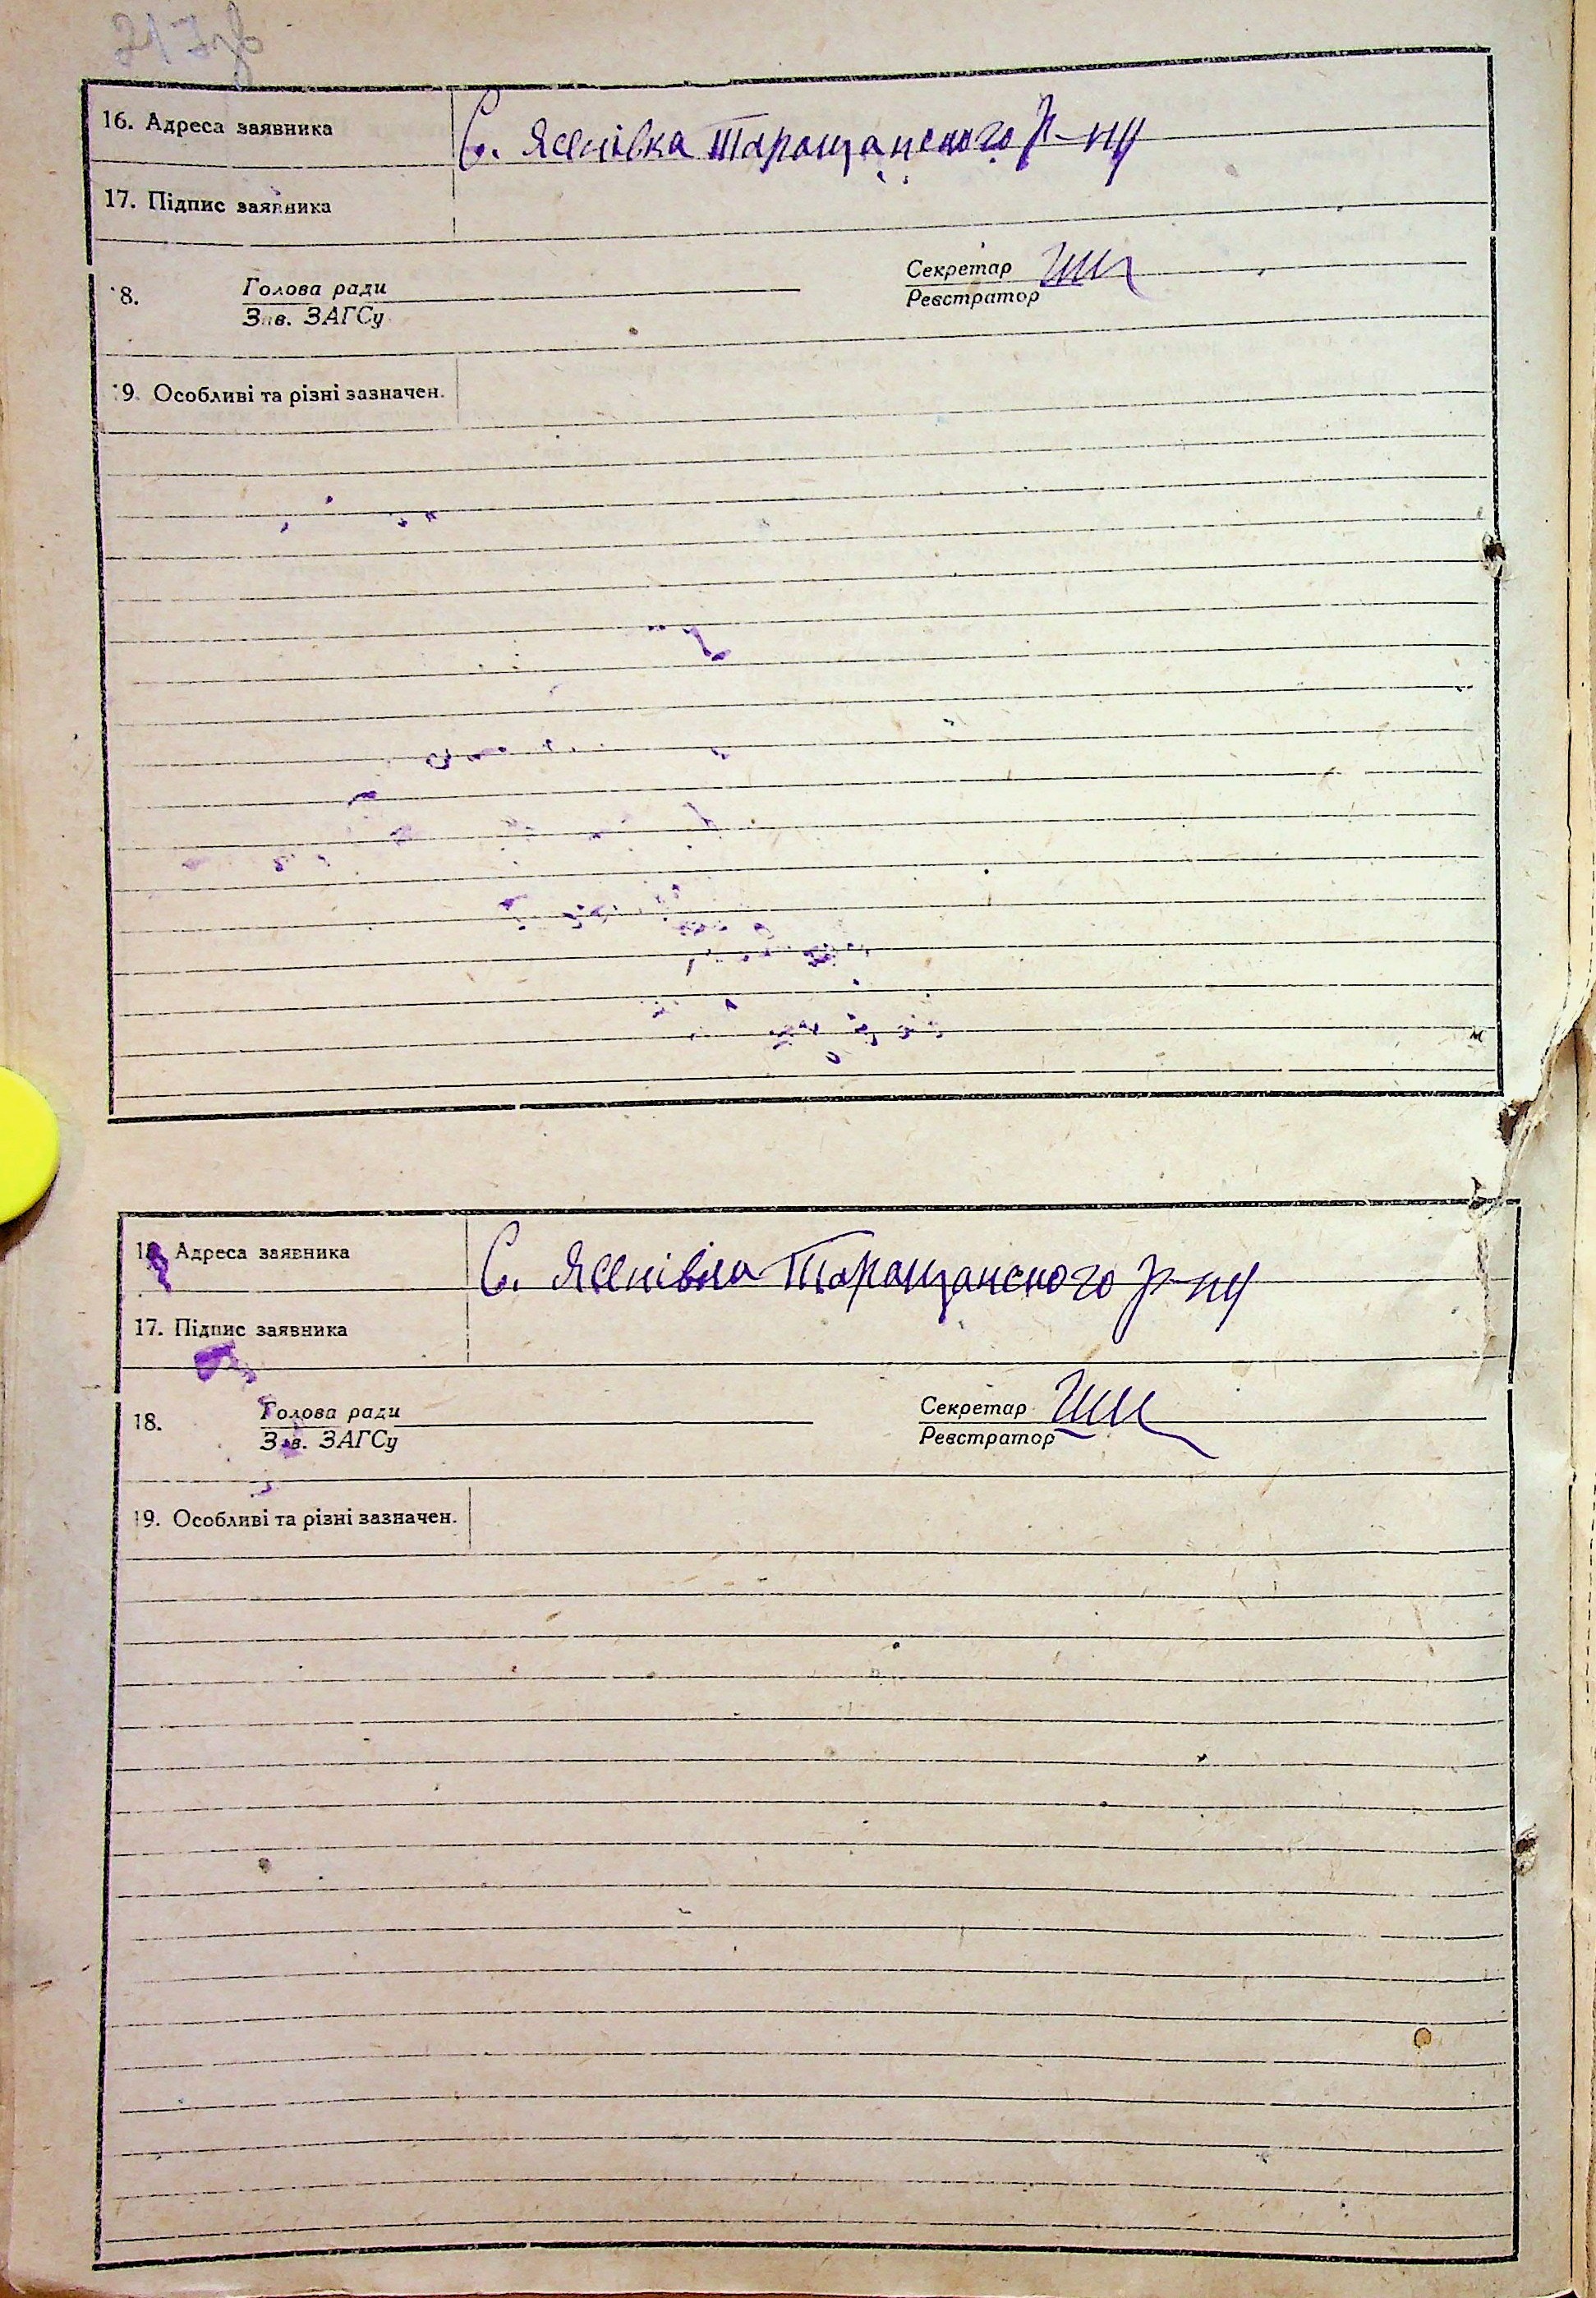 217зв
16. Адреса заявника С. Ясенівка Таращанского р-ну
17. Підпис заявника
8. Голова ради Секретар
Зав. ЗАГСу Реєстратор
9. Особливі та різні зазначен.
Адреса заявника С. Ясенівка Таращанского р-ну
17. Підпис заявника
18. Голова ради Секретар
Зав. ЗАГСу Реєстратор
19. Особливі та різні зазначен.